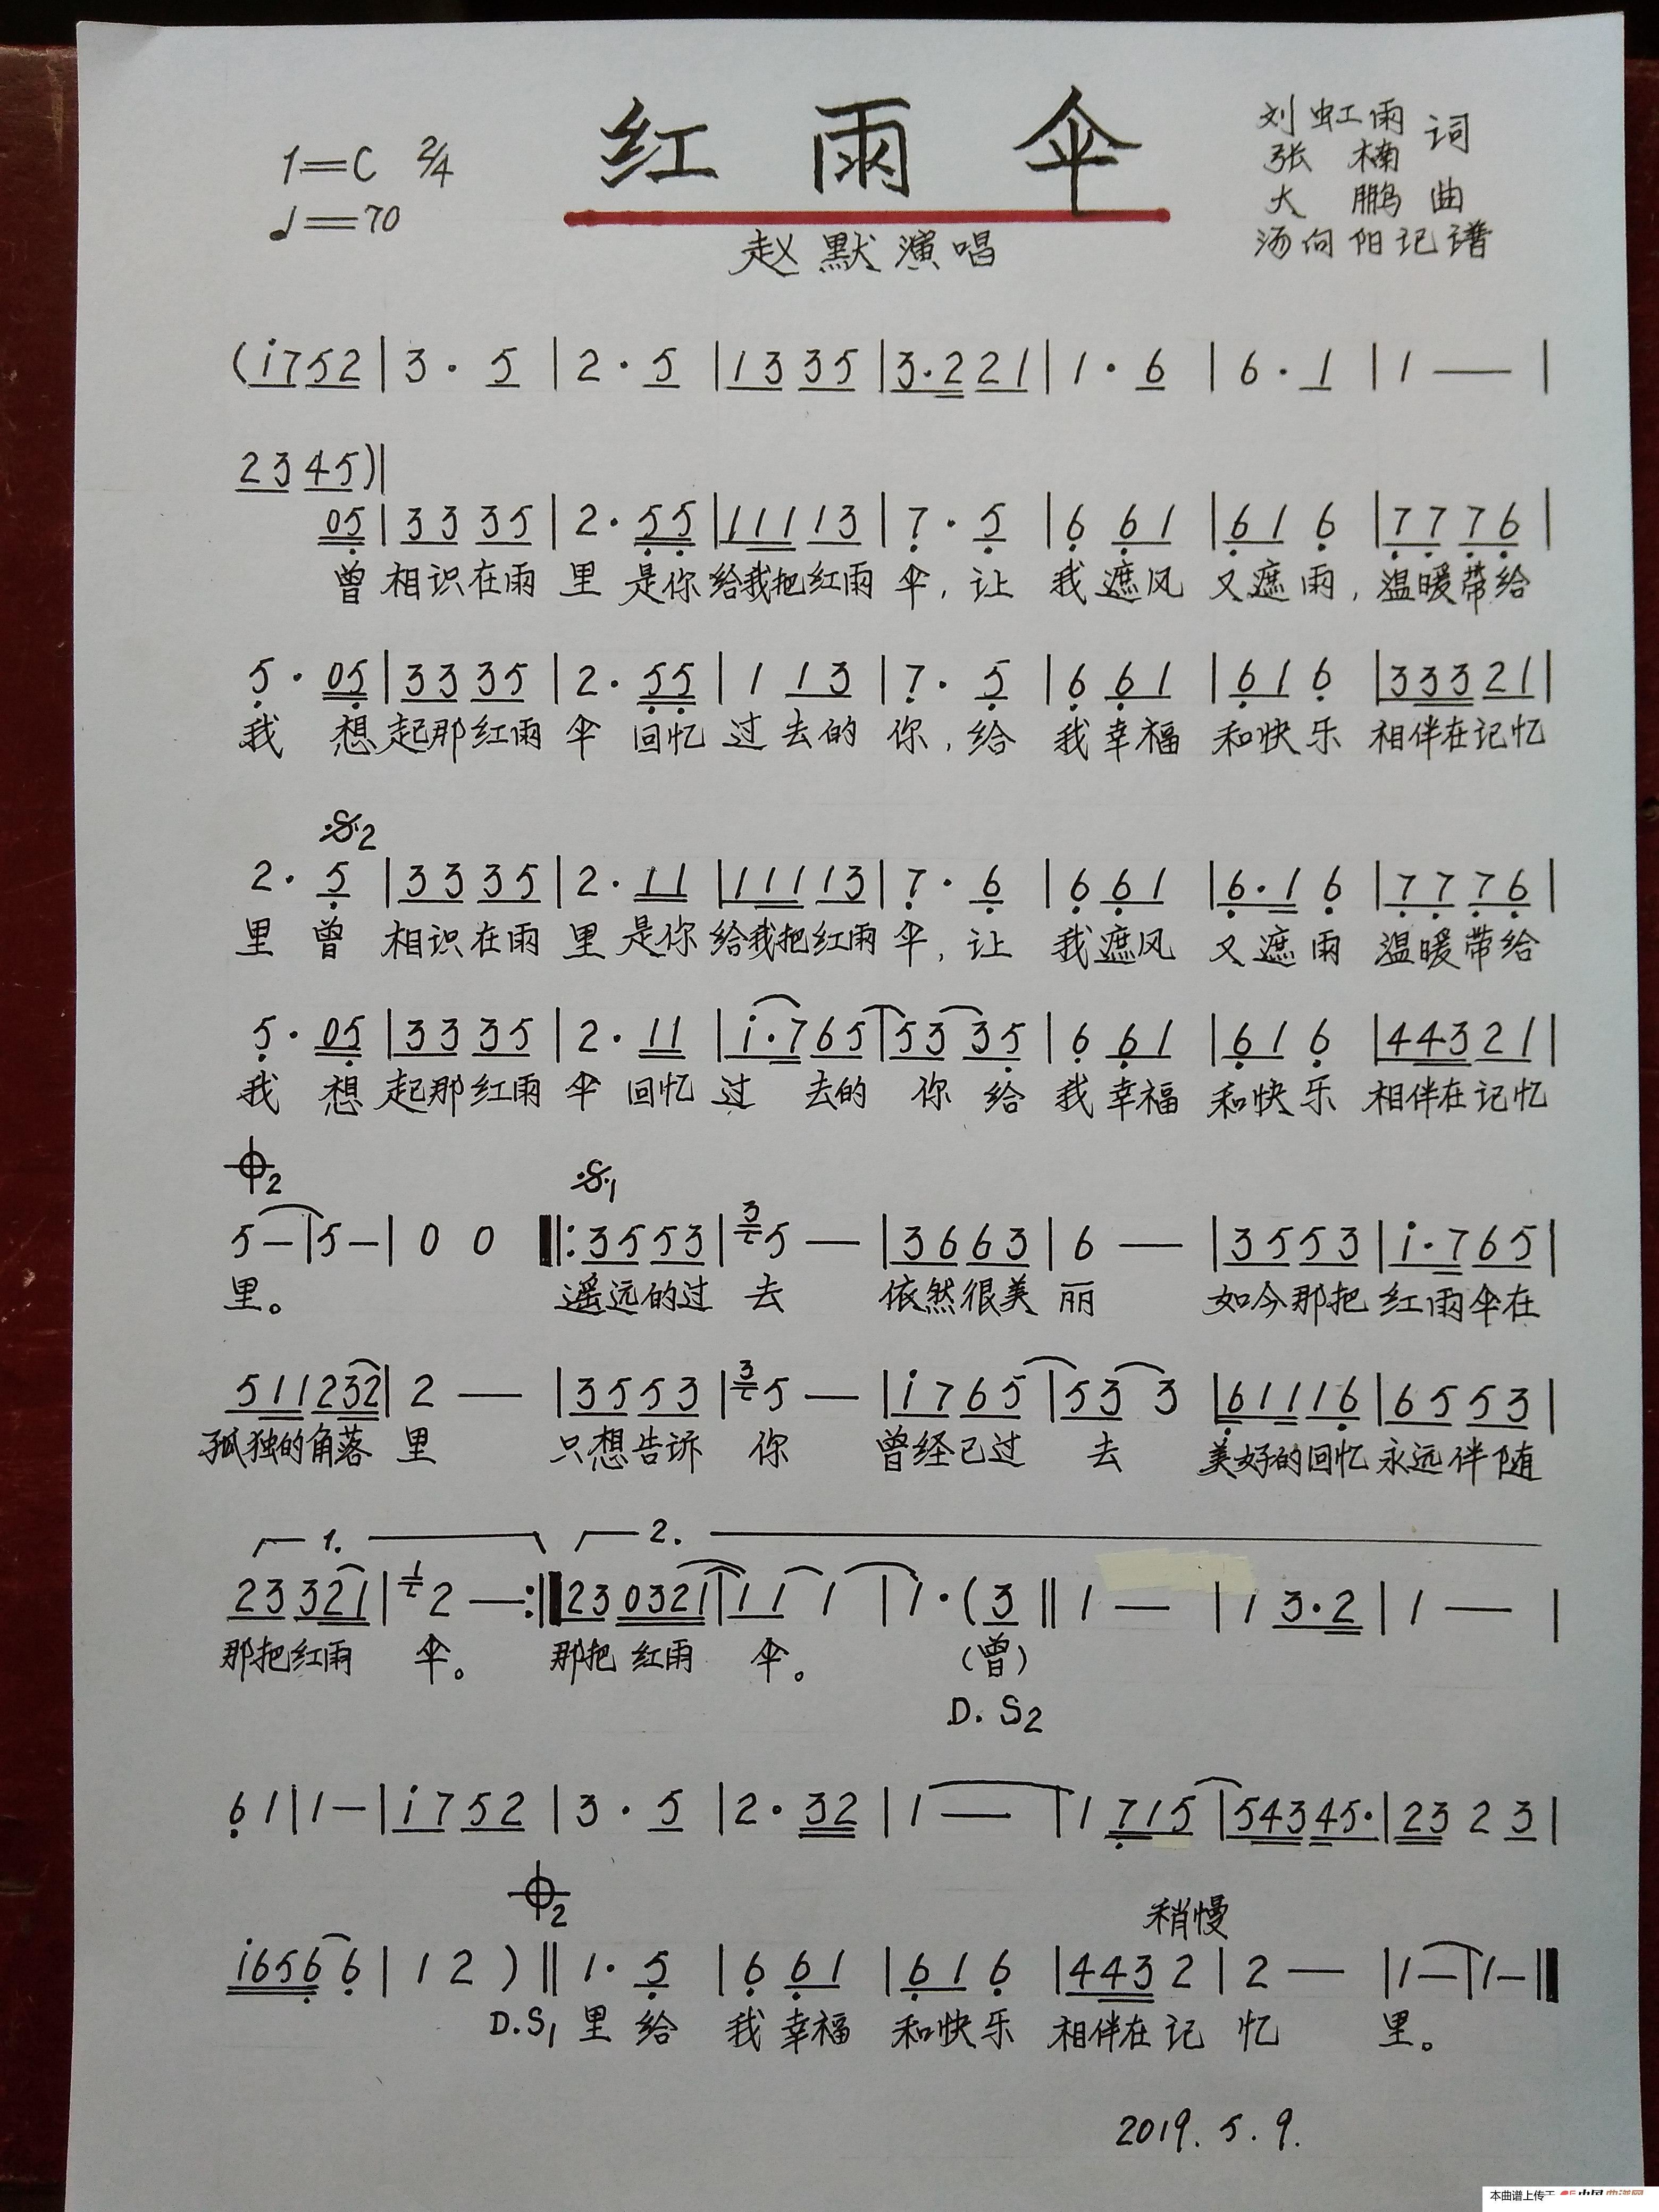 红雨伞
1=C 2/4
♩=70
刘虹雨 词
张楠
大鹏 曲
汤向阳记谱
赵默演唱
(i752|3·5|2·5|1335|3·221|1·6|6·1|1—|
2345)|
05|3335|2·55|11113|7·5|661|616|7776|
曾相识在雨里是你给我把红雨伞,让我遮风又遮雨,温暖带给
5·05|3335|2·55|113|7·5|661|616|33321|
我想起那红雨伞回忆过去的你,给我幸福和快乐相伴在记忆
𝄋2
2·5|3335|2·11|111113|7·6|661|6·16|7776|
里曾相识在雨里是你给我把红雨伞,让我遮风又遮雨温暖带给
5·05|3335|2·11|i·765|5335|661|616|44321|
我想起那红雨伞回忆过去的你给我幸福和快乐相伴在记忆
𝄌2 𝄋1
5—|5—|0 0‖:3553|3 5—|3663|6—|3553|i·765|
里。遥远的过去依然很美丽如今那把红雨伞在
511232|2—|3553|3 5—|i765|533|61116|6553|
孤独的角落里只想告诉你曾经已过去美好的回忆永远伴随
1. 2.
23321|1 2—:‖230321|111|1·(3‖1—|13·2|1—|
那把红雨伞。那把红雨伞。(曾)
D.S2
61|1—|i752|3·5|2·32|1—|1715|54345·|2323|
𝄌2 稍慢
i6566|12)‖1·5|661|616|4432|2—|1—|1—‖
D.S1里给我幸福和快乐相伴在记忆里。
2019.5.9.
本曲谱上传于